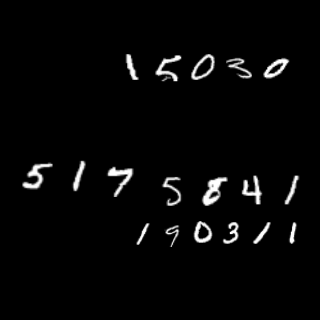 15030
517
5841
190311